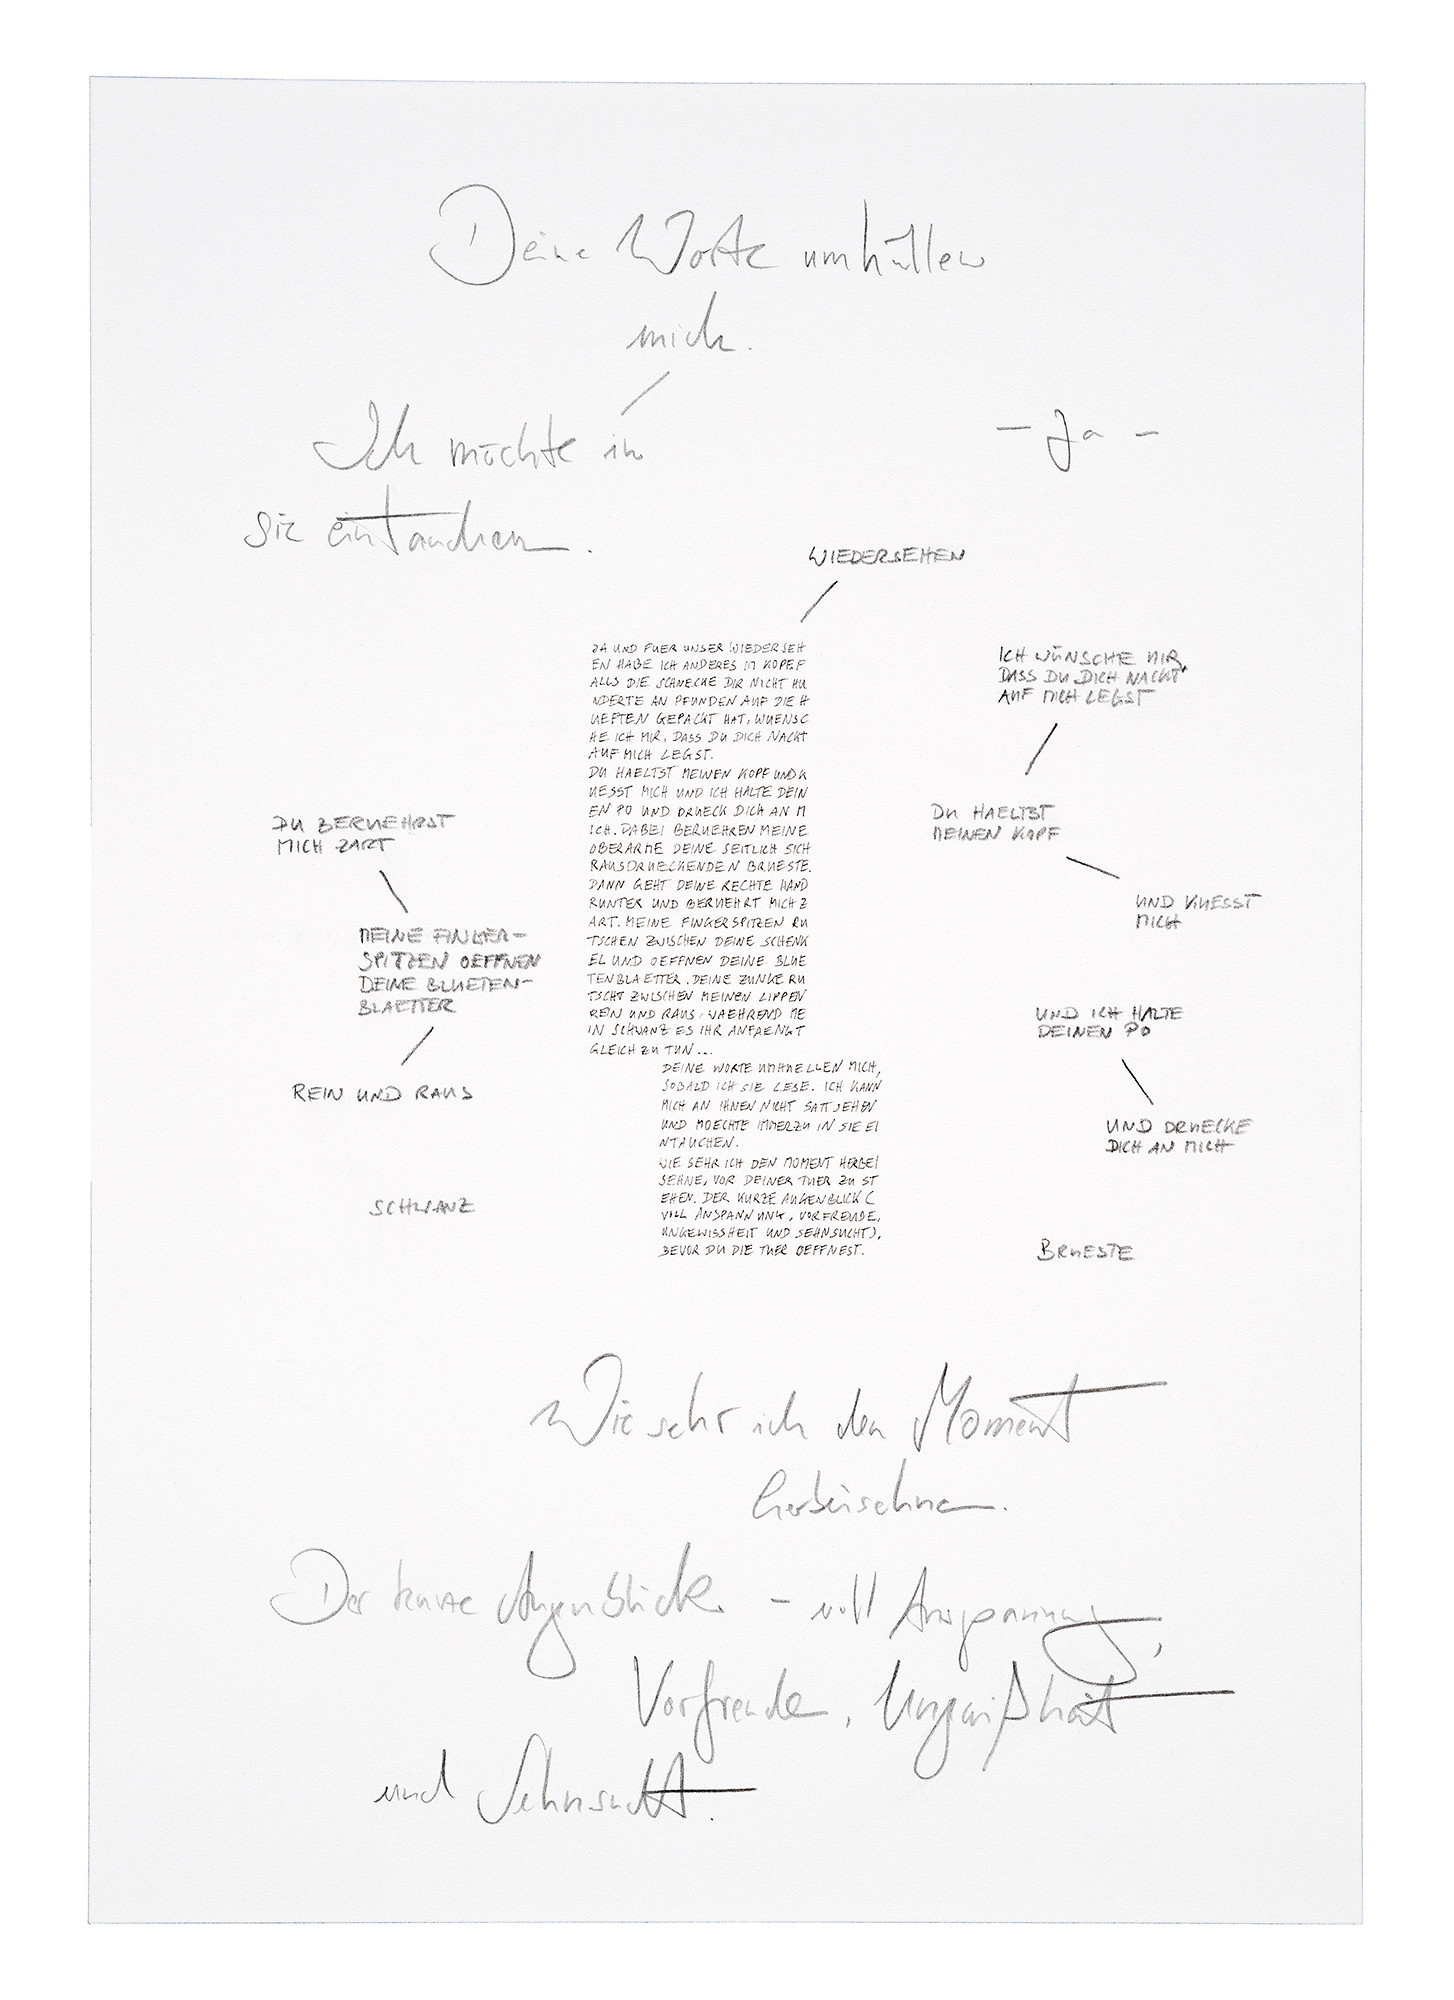 Deine Worte umhüllen
mich.
Ich möchte in
sie eintauchen.
— Ja —
WIEDERSEHEN
JA UND FUER UNSER WIEDERSEH
EN HABE ICH ANDERES IM KOPF
ALLS DIE SCHNECKE DIR NICHT HU
NDERTE AN PFUNDEN AUF DIE H
UEFTEN GEPACKT HAT, WUENSC
HE ICH MIR, DASS DU DICH NACKT
AUF MICH LEGST.
DU HAELTST MEINEN KOPF UND K
UESST MICH UND ICH HALTE DEIN
EN PO UND DRUECK DICH AN M
ICH. DABEI BERUEHREN MEINE
OBERARME DEINE SEITLICH SICH
RAUSDRUECKENDEN BRUESTE.
DANN GEHT DEINE RECHTE HAND
RUNTER UND BERUEHRT MICH Z
ART. MEINE FINGERSPITZEN RU
TSCHEN ZWISCHEN DEINE SCHENK
EL UND OEFFNEN DEINE BLUE
TENBLAETTER. DEINE ZUNGE RU
TSCHT ZWISCHEN MEINEN LIPPEN
REIN UND RAUS, WAEHREND ME
IN SCHWANZ ES IHR ANFAENGT
GLEICH ZU TUN...
DEINE WORTE UMHUELLEN MICH,
SOBALD ICH SIE LESE. ICH KANN
MICH AN IHNEN NICHT SATTSEHEN
UND MOECHTE IMMERZU IN SIE EI
NTAUCHEN.
WIE SEHR ICH DEN MOMENT HERBEI
SEHNE, VOR DEINER TUER ZU ST
EHEN. DER KURZE AUGENBLICK (
VOLL ANSPANNUNG, VORFREUDE,
UNGEWISSHEIT UND SEHNSUCHT),
BEVOR DU DIE TUER OEFFNEST.
ICH WÜNSCHE MIR,
DASS DU DICH NACKT
AUF MICH LEGST
DU HAELTST
MEINEN KOPF
UND KUESST
MICH
UND ICH HALTE
DEINEN PO
UND DRUECKE
DICH AN MICH
BRUESTE
DU BERUEHRST
MICH ZART
MEINE FINGER-
SPITZEN OEFFNEN
DEINE BLUETEN-
BLAETTER
REIN UND RAUS
SCHWANZ
Wie sehr ich den Moment
herbeisehne.
Der kurze Augenblick – voll Anspannung,
Vorfreude, Ungewißheit
und Sehnsucht.